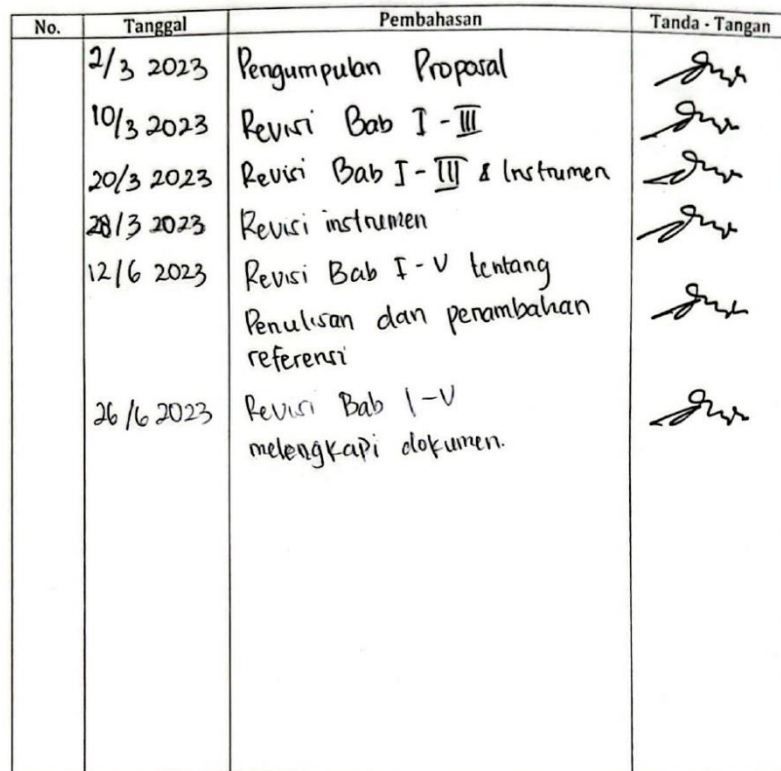 No. Tanggal Pembahasan Tanda - Tangan
2/3 2023 Pengumpulan Proposal
10/3 2023 Revisi Bab I - III
20/3 2023 Revisi Bab I - III & Instrumen
28/3 2023 Revisi instrumen
12/6 2023 Revisi Bab I - V tentang
Penulisan dan penambahan
referensi
26/6 2023 Revisi Bab I - V
melengkapi dokumen.